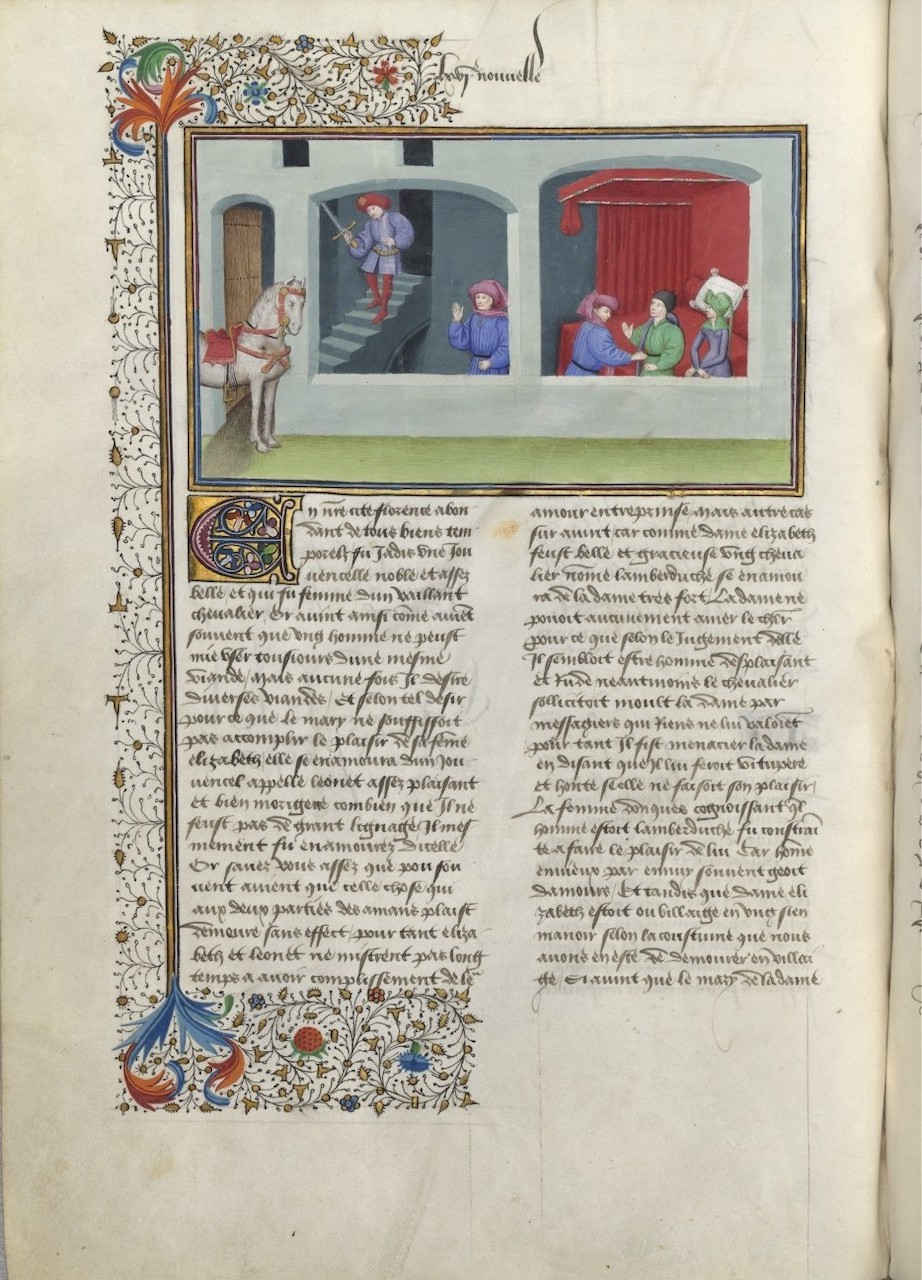 lxvj nouvelle
En nr̄e cite florence abon
dant de tous biens tem
porelz fu Jadis vne Jou
uencelle noble et assez
belle et qui fu femme dun vaillant
cheualier Or auint ainsi cōme auiēt
souuent que vng homme ne peust
mie vser tousiours dune mesme
viande / Mais aucune fois Il desire
diuerses viandes / Et selon tel desir
pour ce que le mary ne souffisoit
pas acomplir le plaisir de sa fēme
elizabeth elle se enamoura dun Jou
uencel appelle leonet assez plaisant
et bien morigene combien que Il ne
feust pas de grant lignage Il mes
mement fu enamourez dicelle
Or sauez vous assez que pou sou
uent auient que celle chose qui
aux deux parties des amans plaist
demoure sans effect / pour tant eliza
beth et leonet ne mistrent pas long
temps a auoir complissement de le~
amour entreprinse Mais autre cas
sur auint car comme dame elizabeth
feust belle et gracieuse vng cheua
lier nōme lamberduche se enamou
ra de la dame tres fort / La dame ne
pouoit aucunement amer le chlr̄
pour ce que selon le Jugement delle
Il sembloit estre homme desplaisant
et Rude neantmoins le cheualier
sollicitoit moult la dame par
messagiers qui Riens ne lui valoiēt
pour tant Il fist menacier la dame
en disant que Il lui feroit vitupere
et honte se elle ne faisoit son plaisir /
La femme donques cognoissant ql̄
homme estoit lamberduche fu constrai
te a faire le plaisir de lui Car hōme
ennieux par ennuy souuent
damours / Et tandis que dame eli
zabeth estoit ou villaige en vng sien
manoir selon la coustume que nous
auons en este de demourer en villai
ge Il auint que le mary de la dame